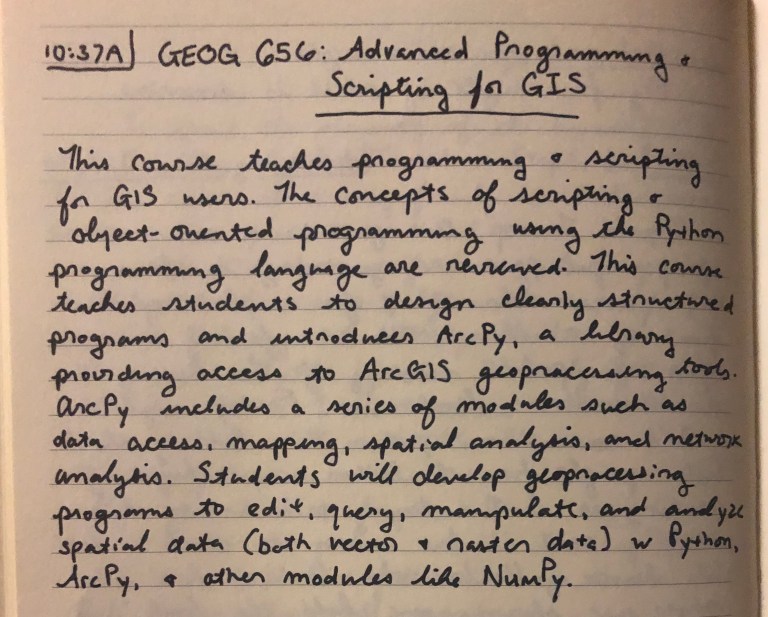 10:37A GEOG 656: Advanced Programming &
Scripting for GIS
This course teaches programming & scripting
for GIS users. The concepts of scripting &
object-oriented programming using the Python
programming language are reviewed. This course
teaches students to design clearly structured
programs and introduces ArcPy, a library
providing access to ArcGIS geoprocessing tools.
ArcPy includes a series of modules such as
data access, mapping, spatial analysis, and network
analysis. Students will develop geoprocessing
programs to edit, query, manipulate, and analyze
spatial data (both vector & raster data) w Python,
ArcPy, & other modules like NumPy.